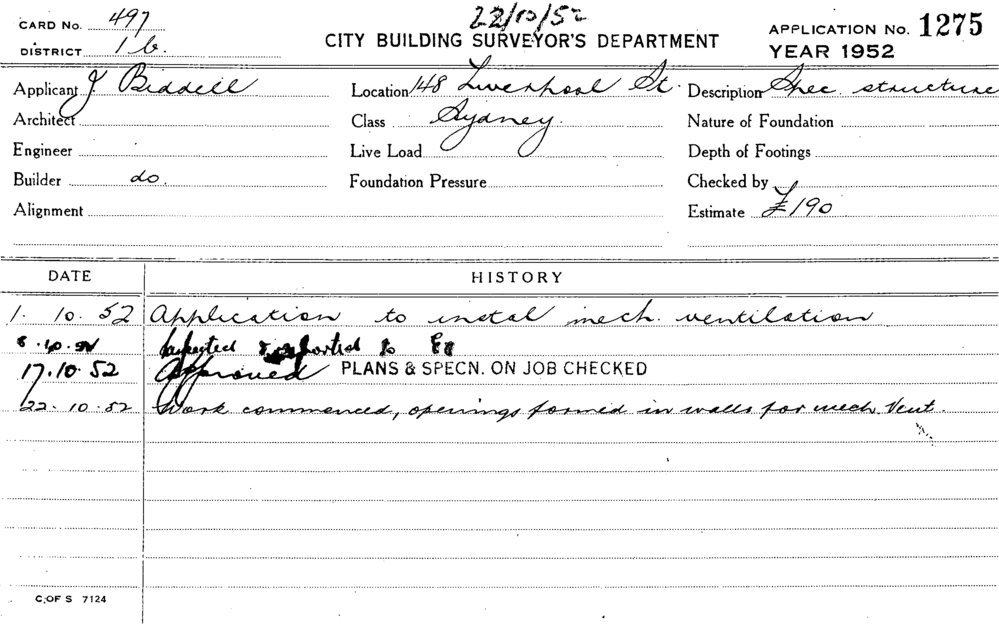 CARD No. 497
22/10/52
APPLICATION No. 1275
DISTRICT 1b.
CITY BUILDING SURVEYOR'S DEPARTMENT
YEAR 1952
Applicant J. Biddell
Location 148 Liverpool St.
Description Spec. structure
Architect
Class Sydney.
Nature of Foundation
Engineer
Live Load
Depth of Footings
Builder do.
Foundation Pressure
Checked by
Alignment
Estimate £190
DATE HISTORY
1. 10. 52 Application to instal mech. ventilation
8.10.52 Inspected & reported to
17.10.52 Approved PLANS & SPECN. ON JOB CHECKED
22.10.52 Work commenced, openings formed in walls for mech. Vent.
C. OF S 7124